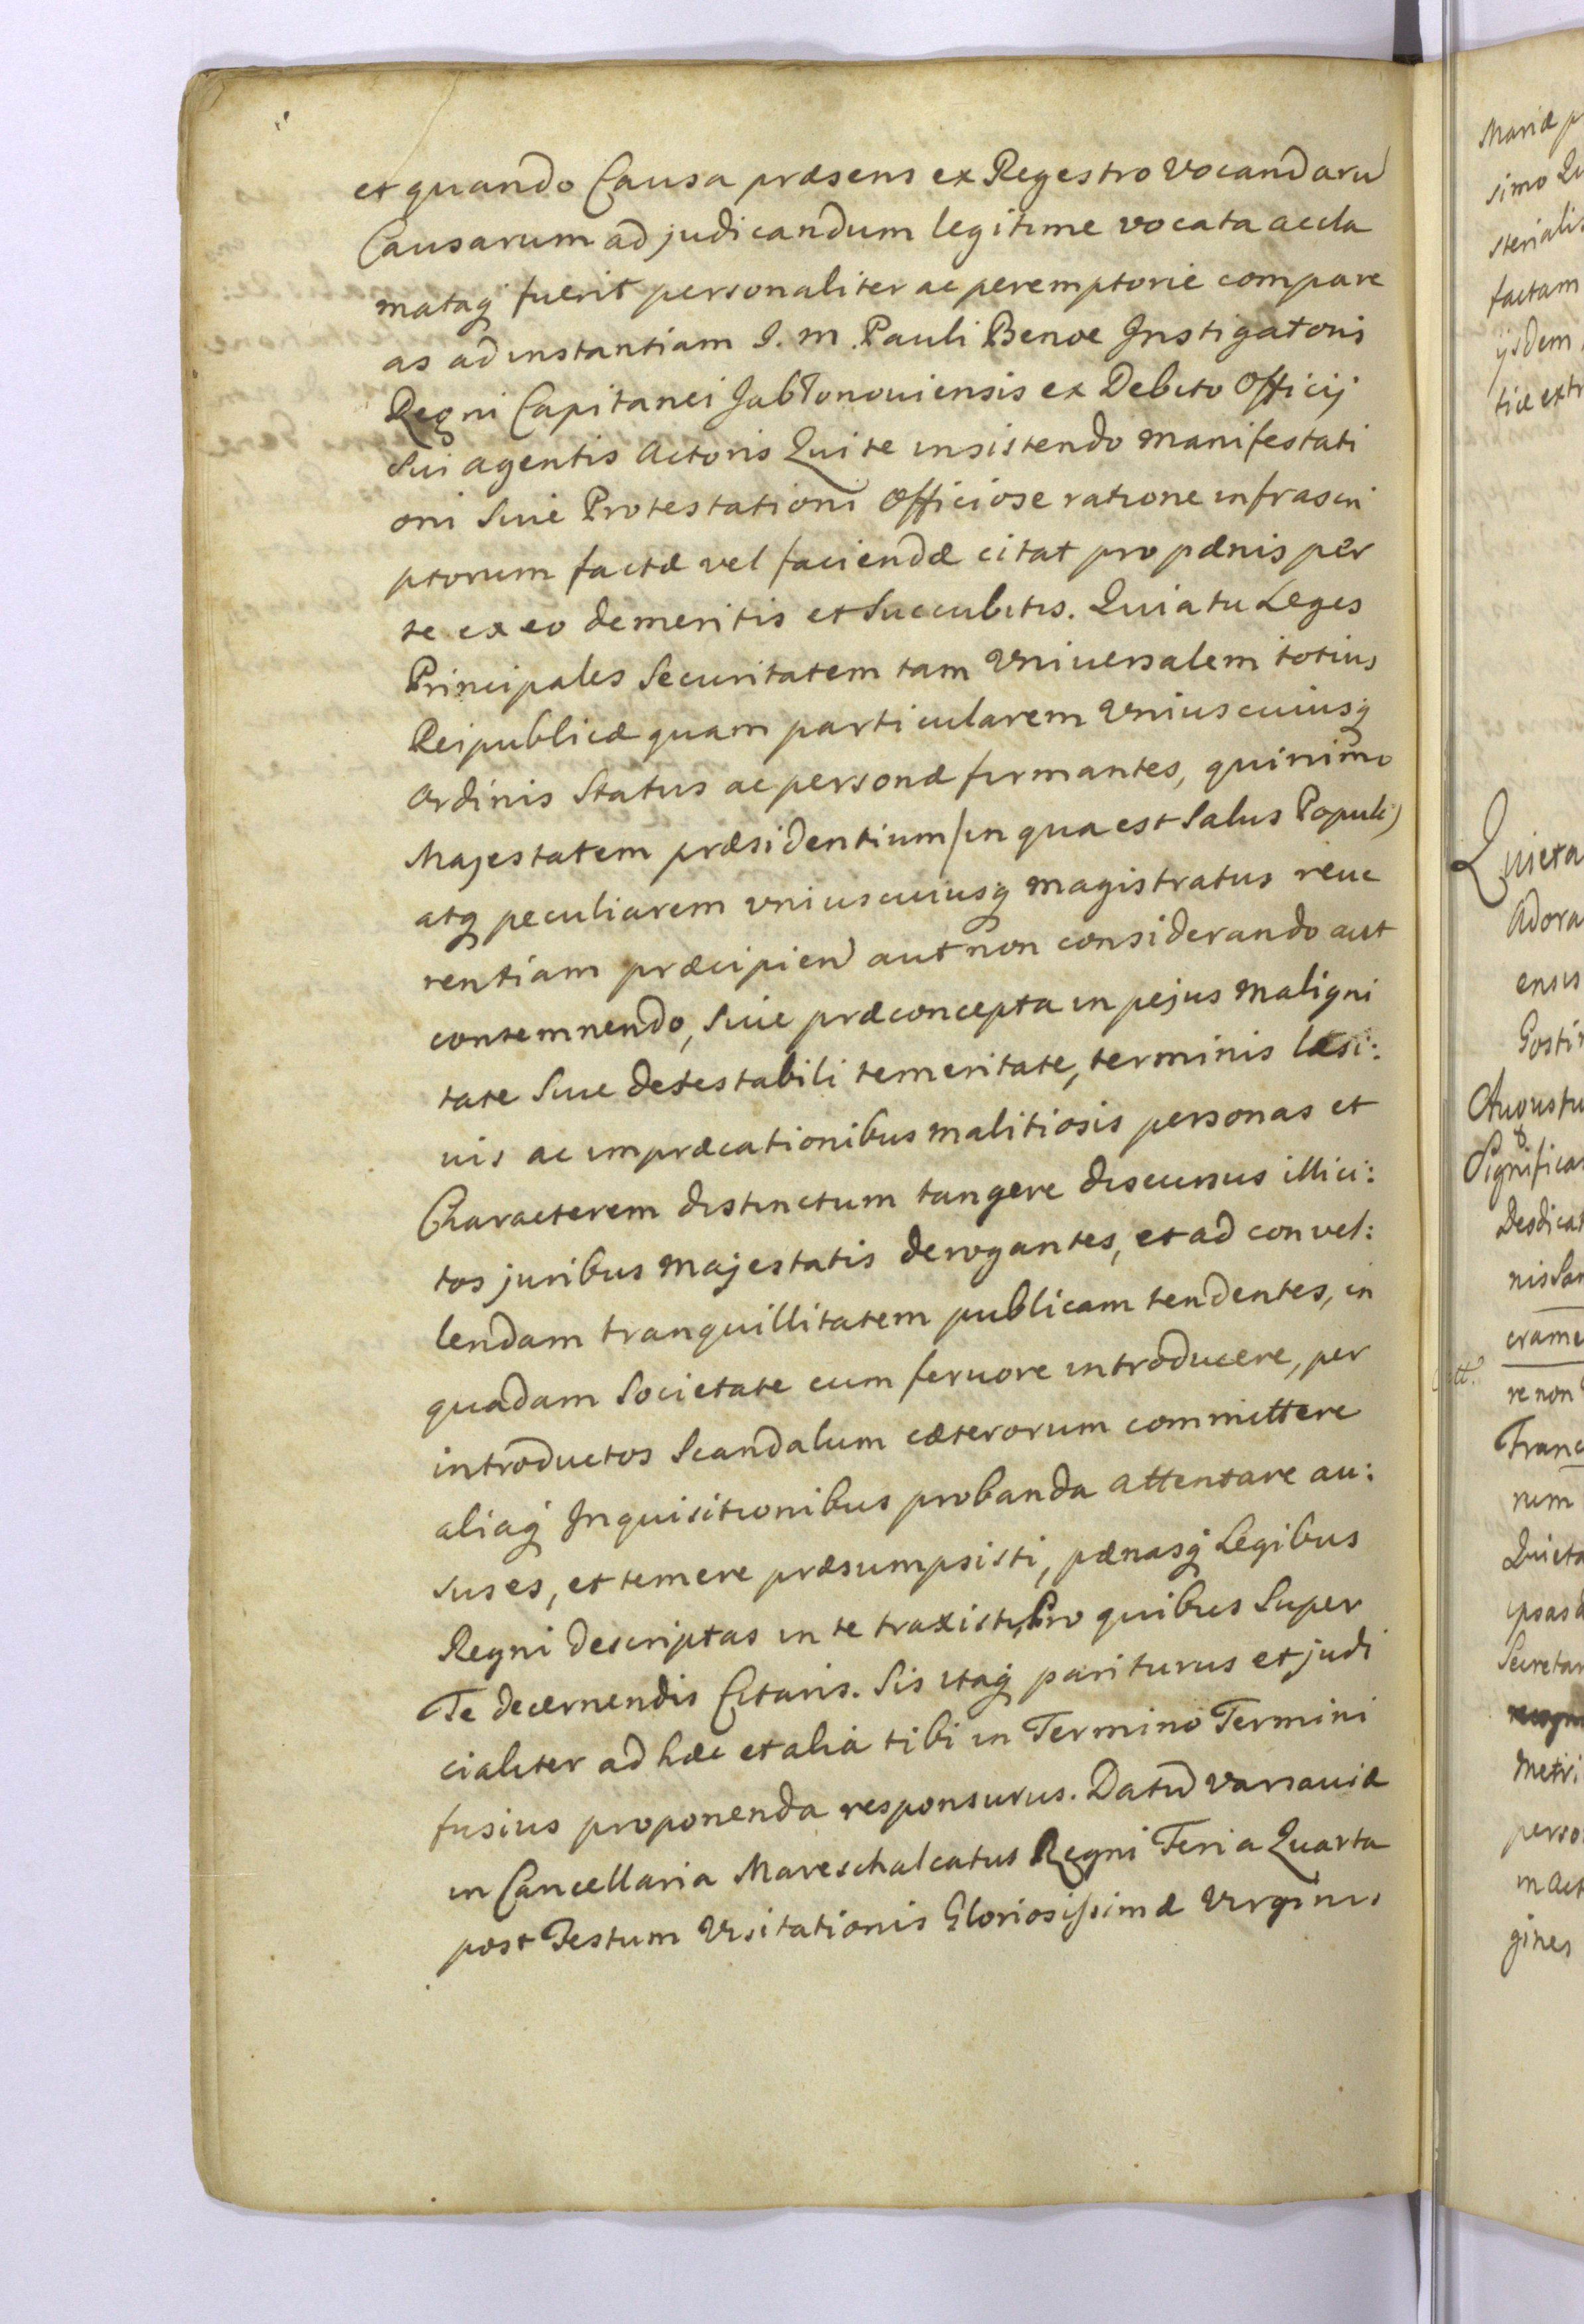 et quando Causa præsens ex Regestro vocandarũ
Causarum ad judicandum legitime vocata accla
mataq fuerit personaliter ac peremptorie compare
as ad instantiam I. M. Pauli Benoe Instigatoris
Regni Capitanei Jabłonouiensis ex Debito Officij
sui agentis Actoris Qui te insistendo Manifestati
oni siue Protestationi Officiose ratione infrascri
ptorum factæ vel faciendæ citat pro pænis per
te ex eo demeritis et succubitis. Quia tu Leges
Principales securitatem tam Vniuersalem totius
Reipublicæ quam particularem Vniuscuiusq
Ordinis Status ac personæ firmantes, quinimo
Majestatem præsidentium (in qua est salus Populi)
atq peculiarem vniuscuiusq Magistratus reue
rentiam præcipien aut non considerando aut
contemnendo, siue præconcepta in pejus maligni
tate siue detestabili temeritate, terminis læsi:
uis ac impræcationibus malitiosis personas et
Characterem distinctum tangere discursus illici:
tos juribus Majestatis derogantes, et ad convel:
lendam tranquillitatem publicam tendentes, in
quadam Societate cum feruore introducere, per
introductos Scandalum cæterorum committere
aliaq Inquisitionibus probanda attentare au:
sus es, et temere præsumpsisti, pænasq Legibus
Regni descriptas in te traxisti, Pro quibus super
Te decernendis Citaris. Sis itaq pariturus et judi
cialiter ad hæc et alia tibi in Termino Termini
fusius proponenda responsurus. Datũ Varsauiæ
in Cancellaria Mareschalcatus Regni Feria Quarta
post Festum Visitationis Gloriosissimæ Virginis
Mariæ
simo
sterialis
factam
ijsdem
tiæ extr
Quieta
Adora
ensis
Gosti
Augustu
Significa
Desdicat
nis San
crame
re non
Franc
num
Quieta
ipsas
Secretar
Metri
perso
in act
gines